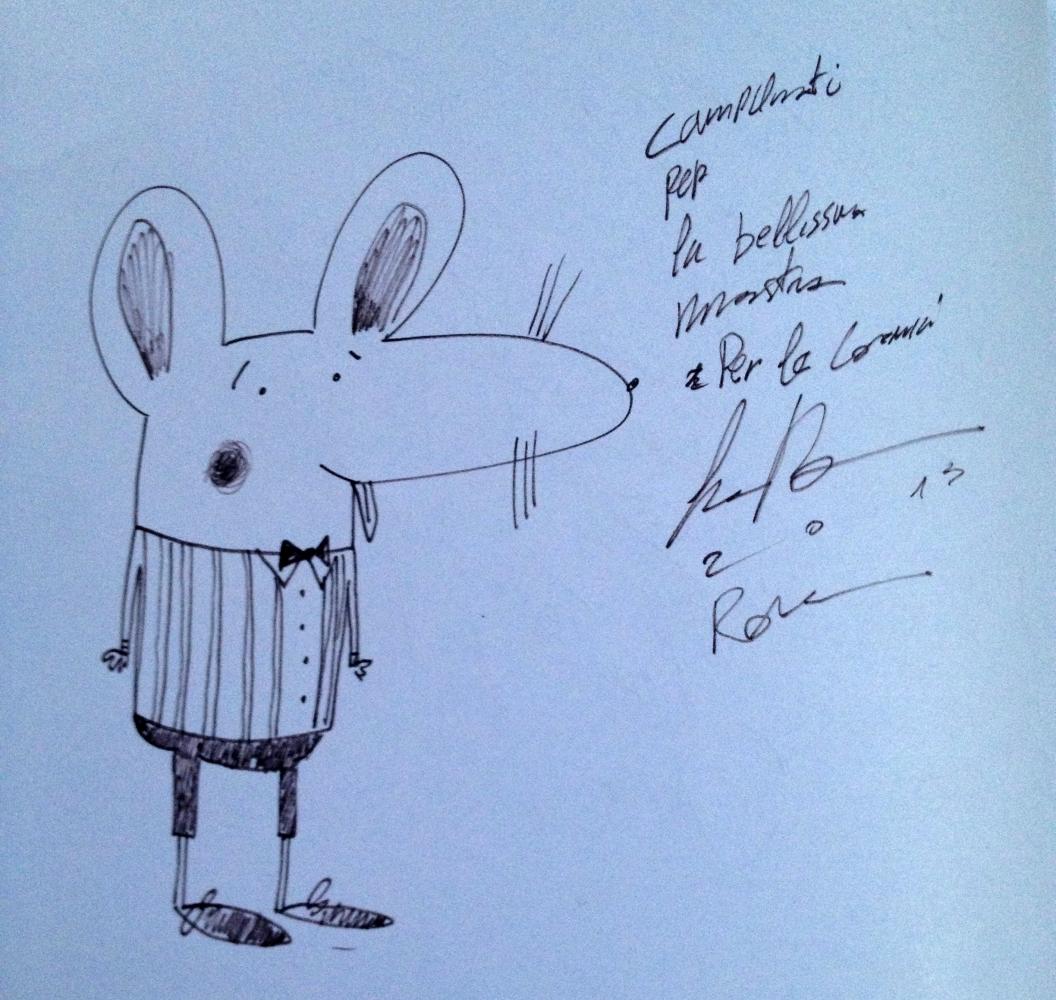 Complimenti
per
la bellissima
mostra
Per le
2013
Roma